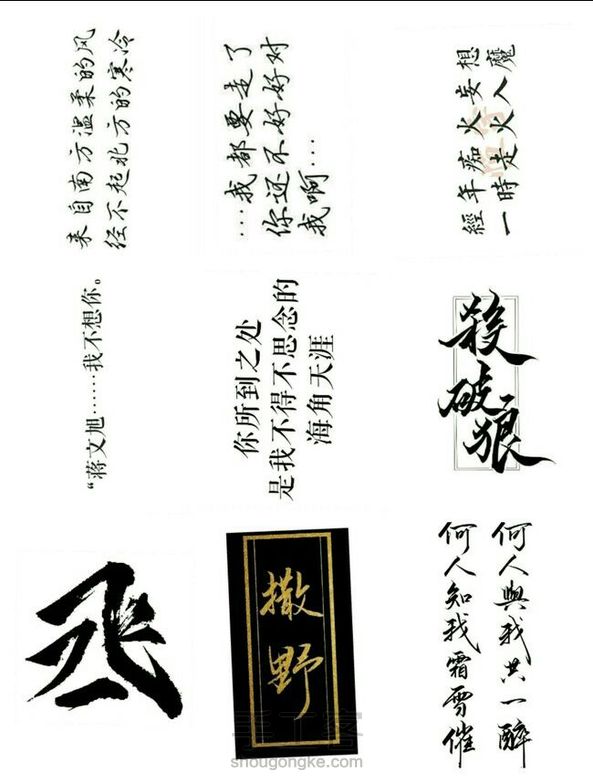 来自南方温柔的风
经不起北方的寒冷
…我都要走了
你还不好好对
我啊…
經年痴心妄想
一時走火入魔
“蒋文旭……我不想你。
你所到之处
是我不得不思念的
海角天涯
殺破狼
撒野
何人知我霜雪催
何人與我共一醉
手工客
shougongke.com